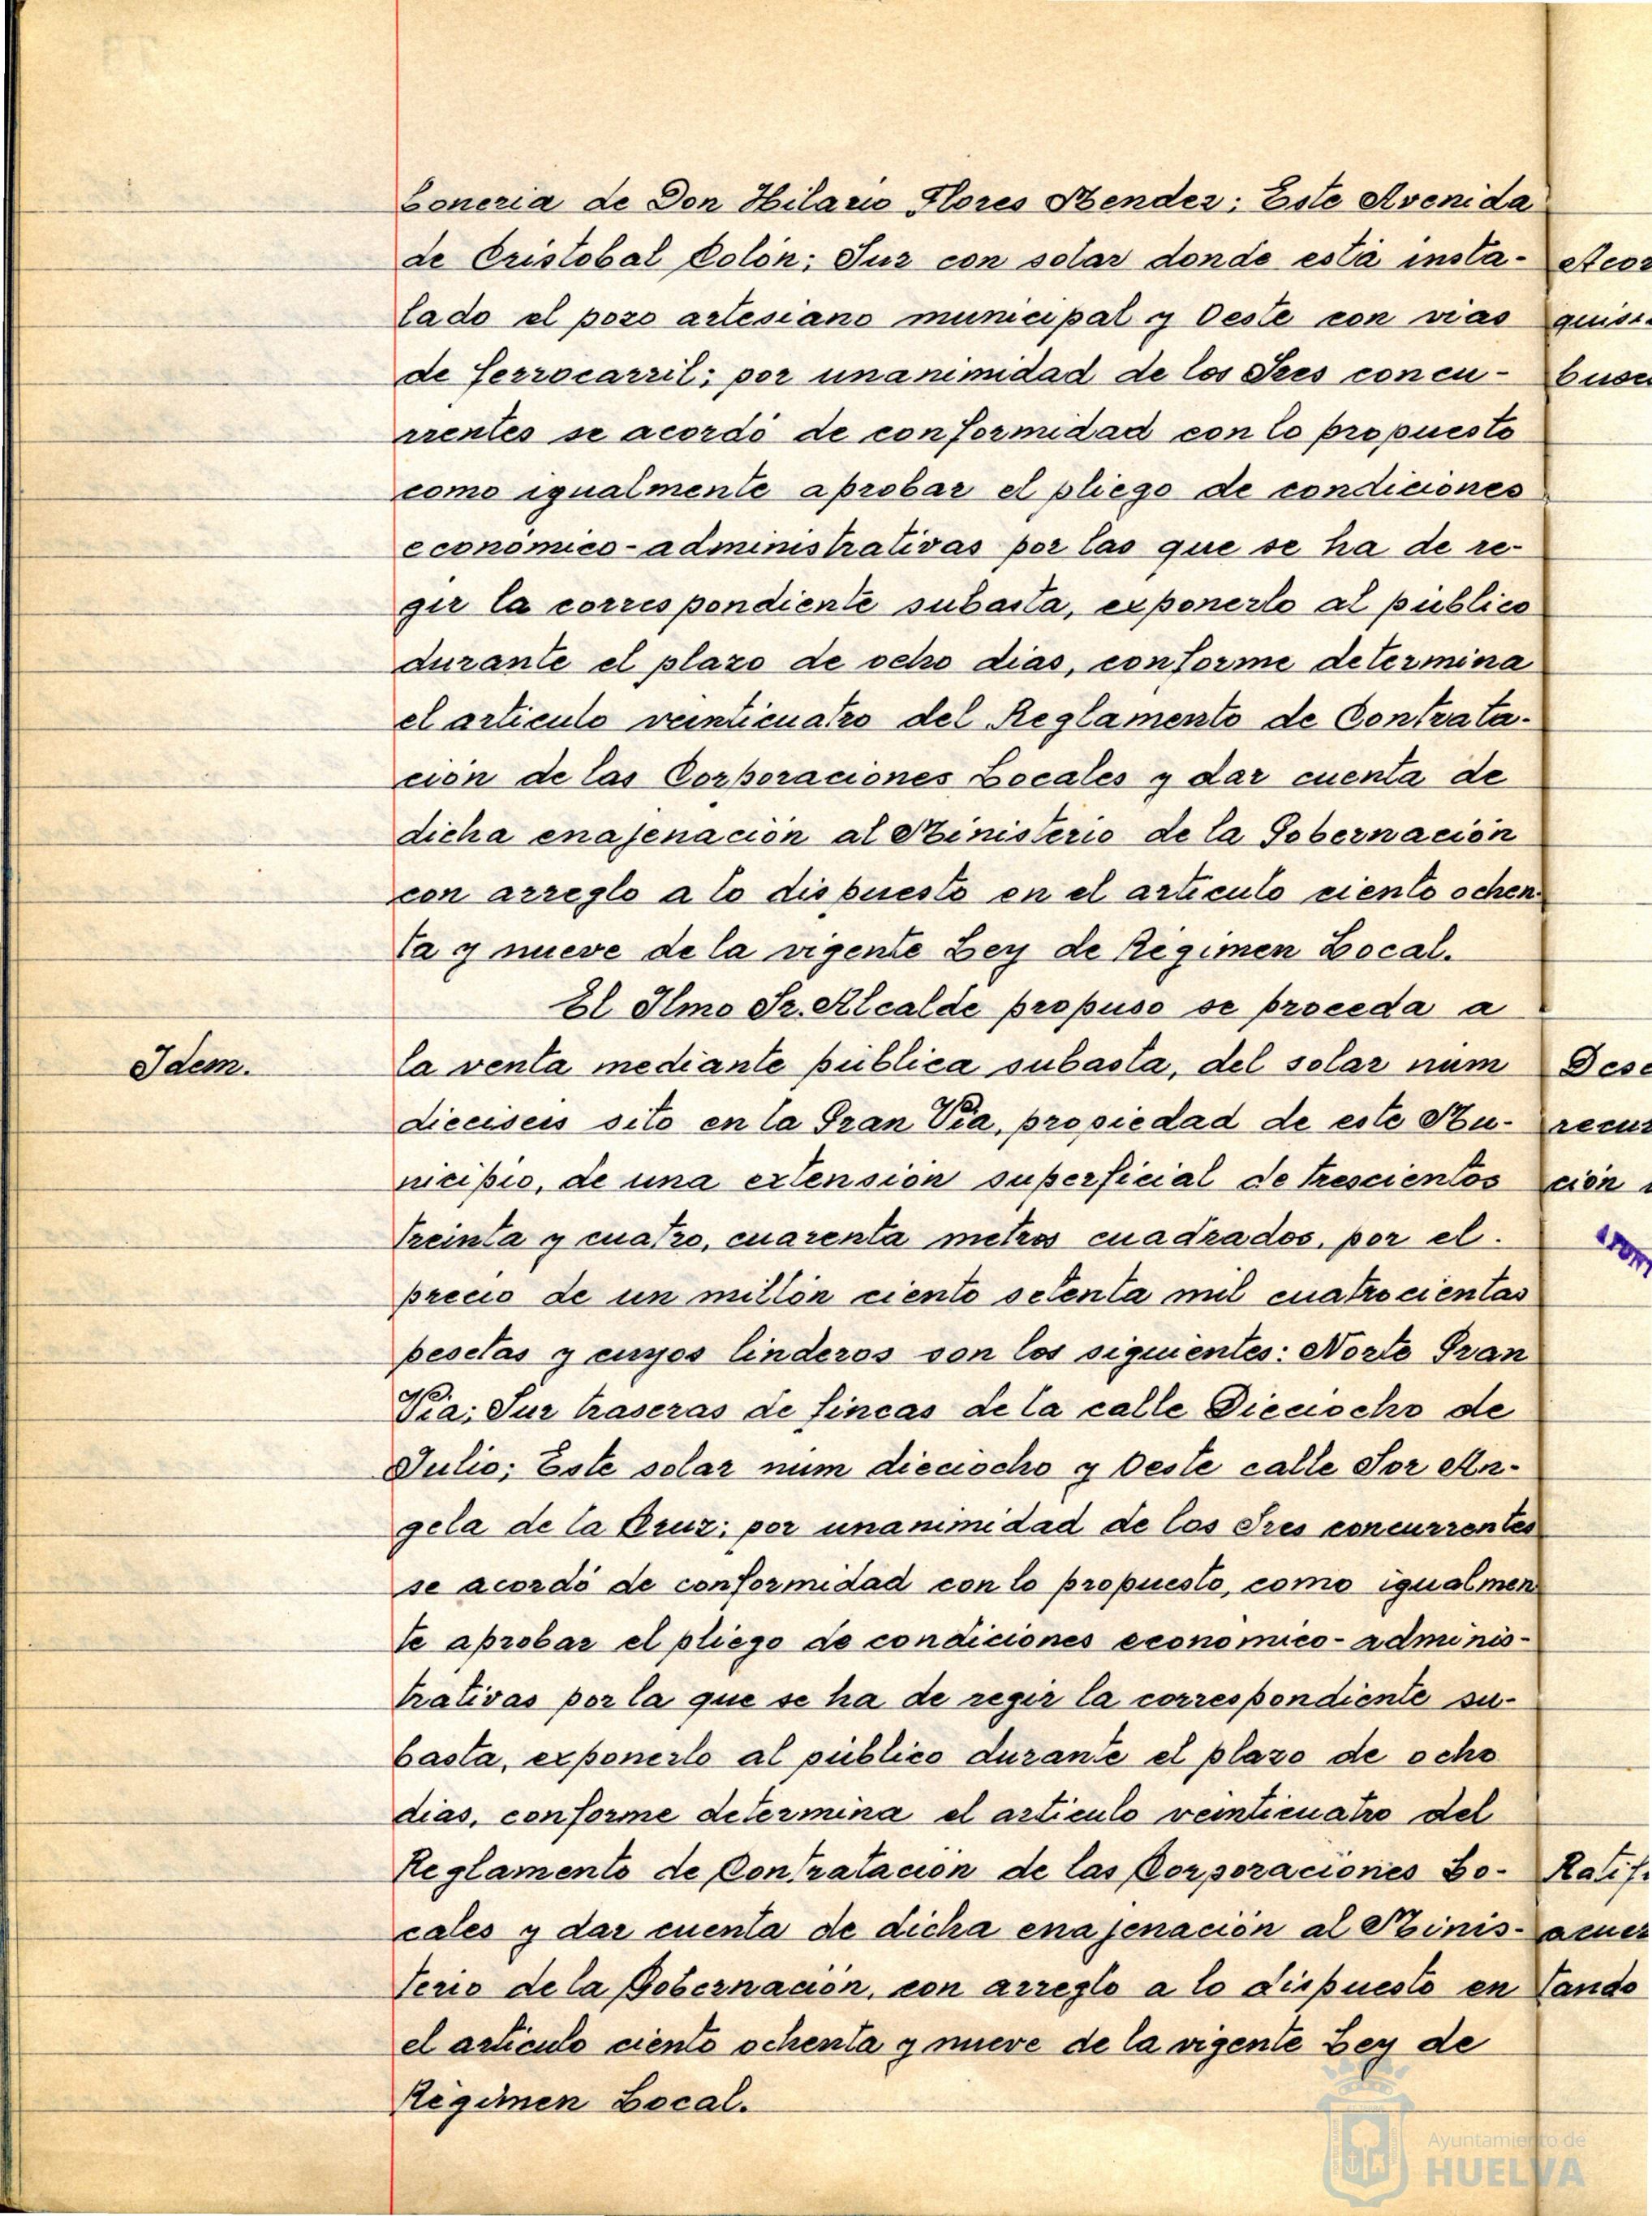 boneria de Don Hilario Flores Mendez; Este Avenida
de Cristobal Colón; Sur con solar donde está insta-
lado el pozo artesiano municipal y Oeste con vias
de ferrocarril; por unanimidad de los Sres concu-
rrentes se acordó de conformidad con lo propuesto
como igualmente aprobar el pliego de condiciones
económico-administrativas por las que se ha de re-
gir la correspondiente subasta, exponerlo al público
durante el plazo de ocho dias, conforme determina
el articulo veinticuatro del Reglamento de Contrata-
ción de las Corporaciones Locales y dar cuenta de
dicha enajenación al Ministerio de la Gobernación
con arreglo a lo dispuesto en el articulo ciento ochen
ta y nueve de la vigente Ley de Régimen Local.
El Ilmo Sr. Alcalde propuso se proceda a
Idem.
la venta mediante pública subasta, del solar num
dieciseis sito en la Gran Via, propiedad de este Mu-
nicipio, de una extensión superficial de trescientos
treinta y cuatro, cuarenta metros cuadrados, por el
precio de un millón ciento setenta mil cuatrocientas
pesetas y cuyos linderos son los siguientes: Norte Gran
Via; Sur traseras de fincas de la calle Dieciocho de
Julio; Este solar num dieciocho y Oeste calle Sor An-
gela de la Cruz; por unanimidad de los Sres concurrentes
se acordó de conformidad con lo propuesto, como igualmen
te aprobar el pliego de condiciones económico-adminis-
trativas por la que se ha de regir la correspondiente su-
basta, exponerlo al público durante el plazo de ocho
dias, conforme determina el articulo veinticuatro del
Reglamento de Contratación de las Corporaciones Lo-
cales y dar cuenta de dicha enajenación al Minis-
terio de la Gobernación, con arreglo a lo dispuesto en
el articulo ciento ochenta y nueve de la vigente Ley de
Régimen Local.
Ayuntamiento de
HUELVA